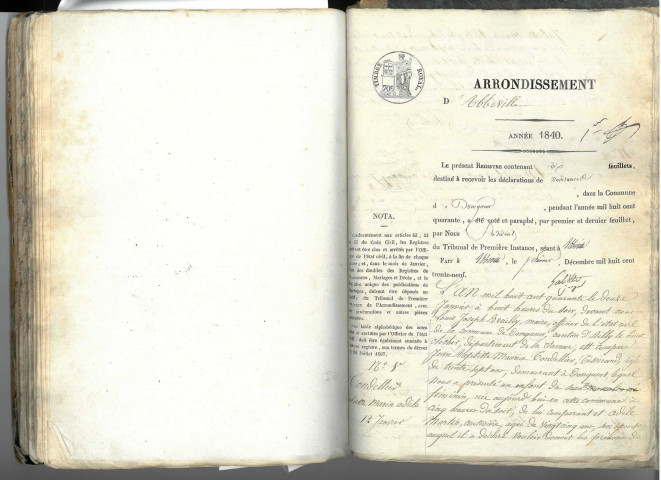 TIMBRE ROYAL.
ARRONDISSEMENT
D'Abbeville
ANNÉE 1840.
1er
Le présent REGISTRE contenant six feuillets,
destiné à recevoir les déclarations de naissances
, dans la Commune
d , pendant l'année mil huit cent
quarante, a été coté et paraphé, par premier et dernier feuillet,
par Nous
du Tribunal de Première Instance, séant à Abbeville
FAIT à Abbeville, le Décembre mil huit cent
trente-neuf.
NOTA.
Conformément aux articles 42, 43
du Code Civil, les Registres
être clos et arrêtés par l'Offi-
de l'état civil, à la fin de chaque
et, dans le mois de Janvier,
des doubles des Registres de
Naissances, Mariages et Décès, et le
unique des publications de
Mariages, doivent être déposés au
du Tribunal de Première
de l'Arrondissement, avec
procurations et autres pièces
table alphabétique des actes
et certifiée par l'Officier de l'état
doit être également annexée à
registre, aux termes du décret
20 Juillet 1807.
L'an mil huit cent quarante le douze
Janvier à huit heures du soir, devant nous
Louis Joseph Brailly, maire, officier de l'état civil
de la commune de Donqueur, canton d'Ailly le haut
clocher, département de la Somme, est comparu
Jean Baptiste Cordellier, tisserand, âgé
de trente sept ans, demeurant à Donqueur lequel
nous a présenté un enfant du sexe
féminin, né aujourd'hui en cette commune à
cinq heures du soir, de lui comparant et
Martin, couturière, âgée de vingt cinq ans,
auquel il a déclaré vouloir donner les prénoms de
No 1er
Cordellier
12 Janvier